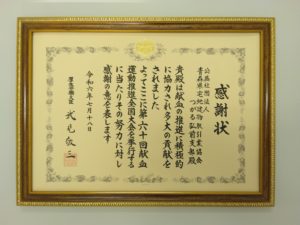 感謝状
公益社団法人
青森県宅地建物取引業協会
つがる弘前支部殿
貴殿は献血の推進に積極的
に協力され多大の貢献を
されました
よってここに第六十回献血
運動推進全国大会を挙行する
に当たりその努力に対し
感謝の意を表します
令和六年七月十八日
厚生労働大臣 武見敬三